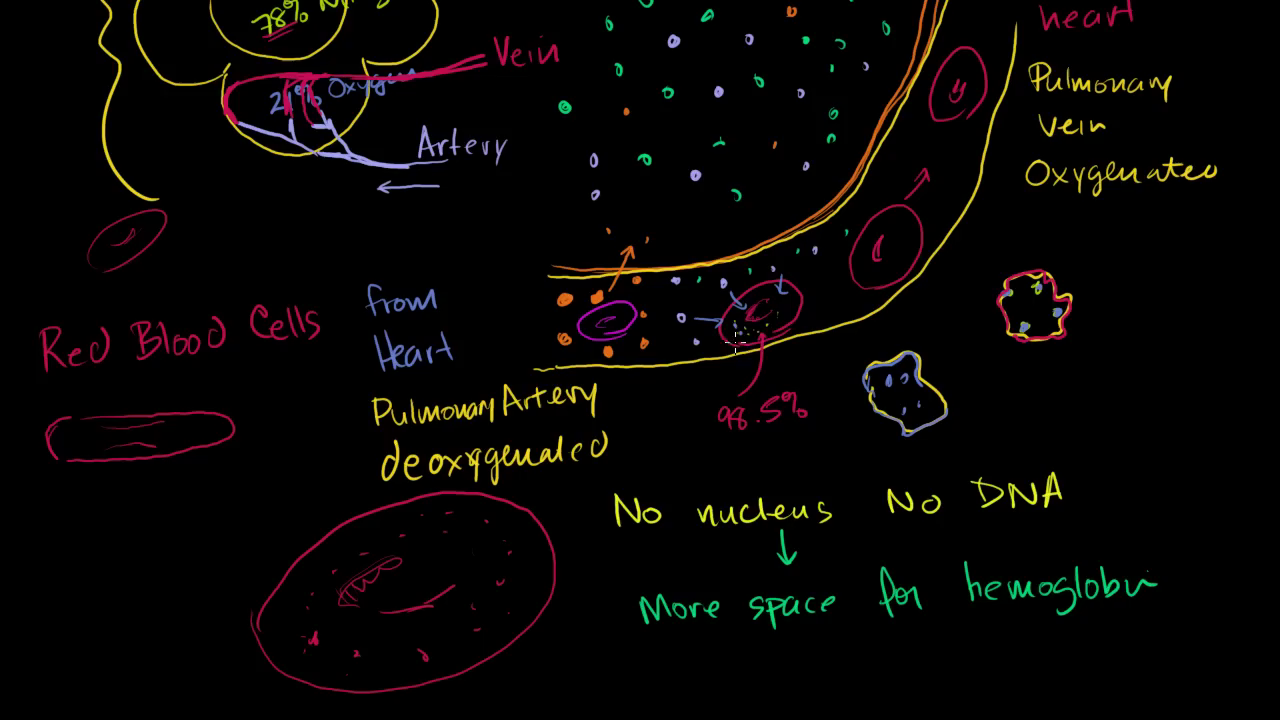 78% Nitrog
21% Oxygen
Vein
Artery
heart
Pulmonary
Vein
Oxygenated
Red Blood Cells
from
Heart
Pulmonary Artery
deoxygenated
98.5%
No nucleus No DNA
More space for hemoglobin